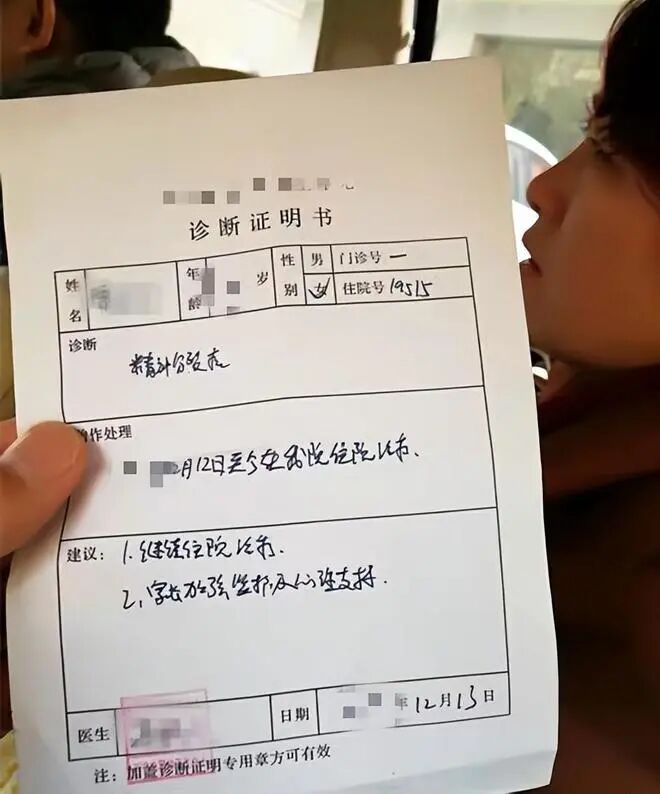 诊断证明书
姓名 年龄 岁 性别 男 女 门诊号 一
住院号 19515
诊断
精神分裂症
作处理
2月12日至今在我院住院治疗.
建议: 1.继续住院治疗.
2、家长加强监护及心理支持.
医生 日期 年12月13日
注: 加盖诊断证明专用章方可有效